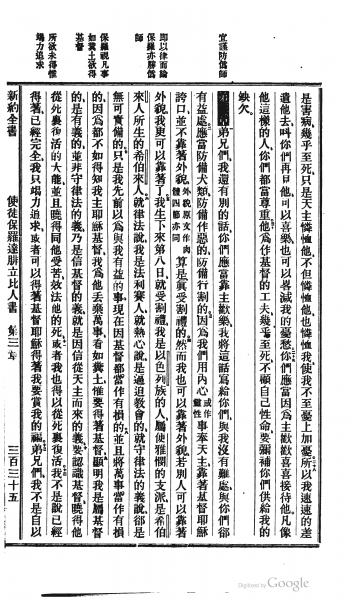 宜謹防僞師
即以律而論
保羅亦勝僞
師
保羅視凡事
如糞土欲得
基督
所欲未得惟
竭力追求
是害病幾乎至死只是天主憐恤他不但憐恤他也憐恤我使我不至憂上加憂所以我速速的差
遣他去叫你們再見他可以喜樂也可以畧減我的憂愁你們應當因爲主歡歡喜喜接待他凡像
他這樣的人你們都當尊重他爲作基督的工夫幾乎至死不顧自己性命要彌補你們供給我的
缺欠
弟兄們我還有別的話你們應當靠主歡樂我將這話寫給你們與我沒有難處與你們卻
有益處應當防備犬類防備作惡的防備行割的因爲我們用內心或作靈性事奉天主靠着基督耶穌
誇口並不靠著外貌外貌原文作肉體四節亦同算是眞受割禮的然而我也可以靠著外貌若別人可以靠著
外貌我更可以靠著了我生下來第八日就受割禮我是以色列族的人屬便雅憫的支派是希伯
來人所生的希伯來人就律法說我是法利賽人就熱心說是逼迫教會的就守律法的義說卻是
無可責備的只是我先前以爲與我有益的事現在因基督都當作有損的並且將萬事當作有損
的因爲都不如得知我主耶穌基督我爲他丟棄萬事看如糞土惟要得著基督顯明我是屬基督
的是有義的並非守律法的義乃是信基督的義就是因信從天主而來的義要認識基督曉得他
從死裏復活的大能並且曉得同他受苦效法他的死或者我也得以從死裏復活我不是說已經
得著已經完全我只竭力追求或者可以得著基督耶穌得著我要賞我的福弟兄們我不是自以
新約全書
使徒保羅達腓立比人書
第三章
三百三十五
Digitized by Google